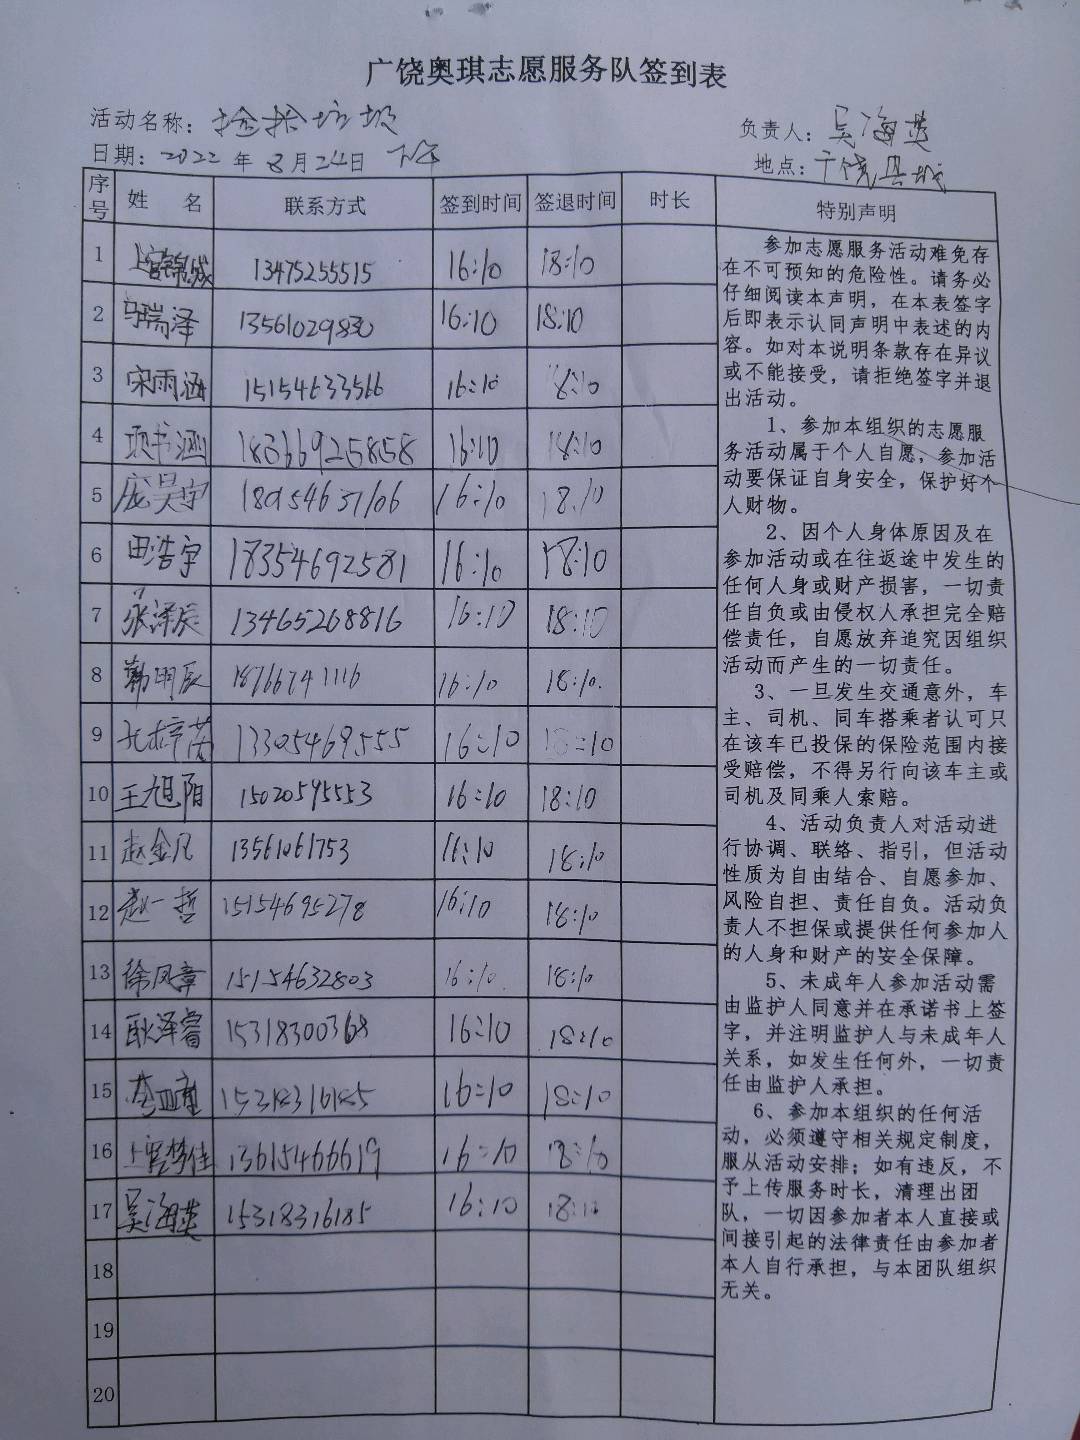 广饶奥琪志愿服务队签到表
活动名称：捡拾垃圾
负责人：吴海英
日期：2022年8月24日 下午
地点：广饶县城
序号 姓名 联系方式 签到时间 签退时间 时长 特别声明
1 上官锦城 13475255515 16:10 18:10
2 马瑞泽 13561029830 16:10 18:10
3 宋雨涵 15154633566 16:10 18:10
4 项书涵 18366925858 16:10 18:10
5 庞昊宇 18954637106 16:10 18:10
6 田浩宇 18354692581 16:10 18:10
7 张泽辰 13465268816 16:10 18:10
8 韩明辰 18766741116 16:10 18:10
9 13305469555 16:10 18:10
10 王旭阳 15020595553 16:10 18:10
11 赵金凡 13561061753 16:10 18:10
12 赵一哲 15154695278 16:10 18:10
13 徐凤章 15154632803 16:10 18:10
14 耿泽睿 15318300368 16:10 18:10
15 15318316185 16:10 18:10
16 上官梦佳 13615466619 16:10 18:10
17 吴海英 15318316185 16:10 18:10
18
19
20
参加志愿服务活动难免存
在不可预知的危险性。请务必
仔细阅读本声明，在本表签字
后即表示认同声明中表述的内
容。如对本说明条款存在异议
或不能接受，请拒绝签字并退
出活动。
1、参加本组织的志愿服
务活动属于个人自愿，参加活
动要保证自身安全，保护好个
人财物。
2、因个人身体原因及在
参加活动或在往返途中发生的
任何人身或财产损害，一切责
任自负或由侵权人承担完全赔
偿责任，自愿放弃追究因组织
活动而产生的一切责任。
3、一旦发生交通意外，车
主、司机、同车搭乘者认可只
在该车已投保的保险范围内接
受赔偿，不得另行向该车主或
司机及同乘人索赔。
4、活动负责人对活动进
行协调、联络、指引，但活动
性质为自由结合、自愿参加、
风险自担、责任自负。活动负
责人不担保或提供任何参加人
的人身和财产的安全保障。
5、未成年人参加活动需
由监护人同意并在承诺书上签
字，并注明监护人与未成年人
关系，如发生任何外，一切责
任由监护人承担。
6、参加本组织的任何活
动，必须遵守相关规定制度，
服从活动安排；如有违反，不
予上传服务时长，清理出团
队，一切因参加者本人直接或
间接引起的法律责任由参加者
本人自行承担，与本团队组织
无关。